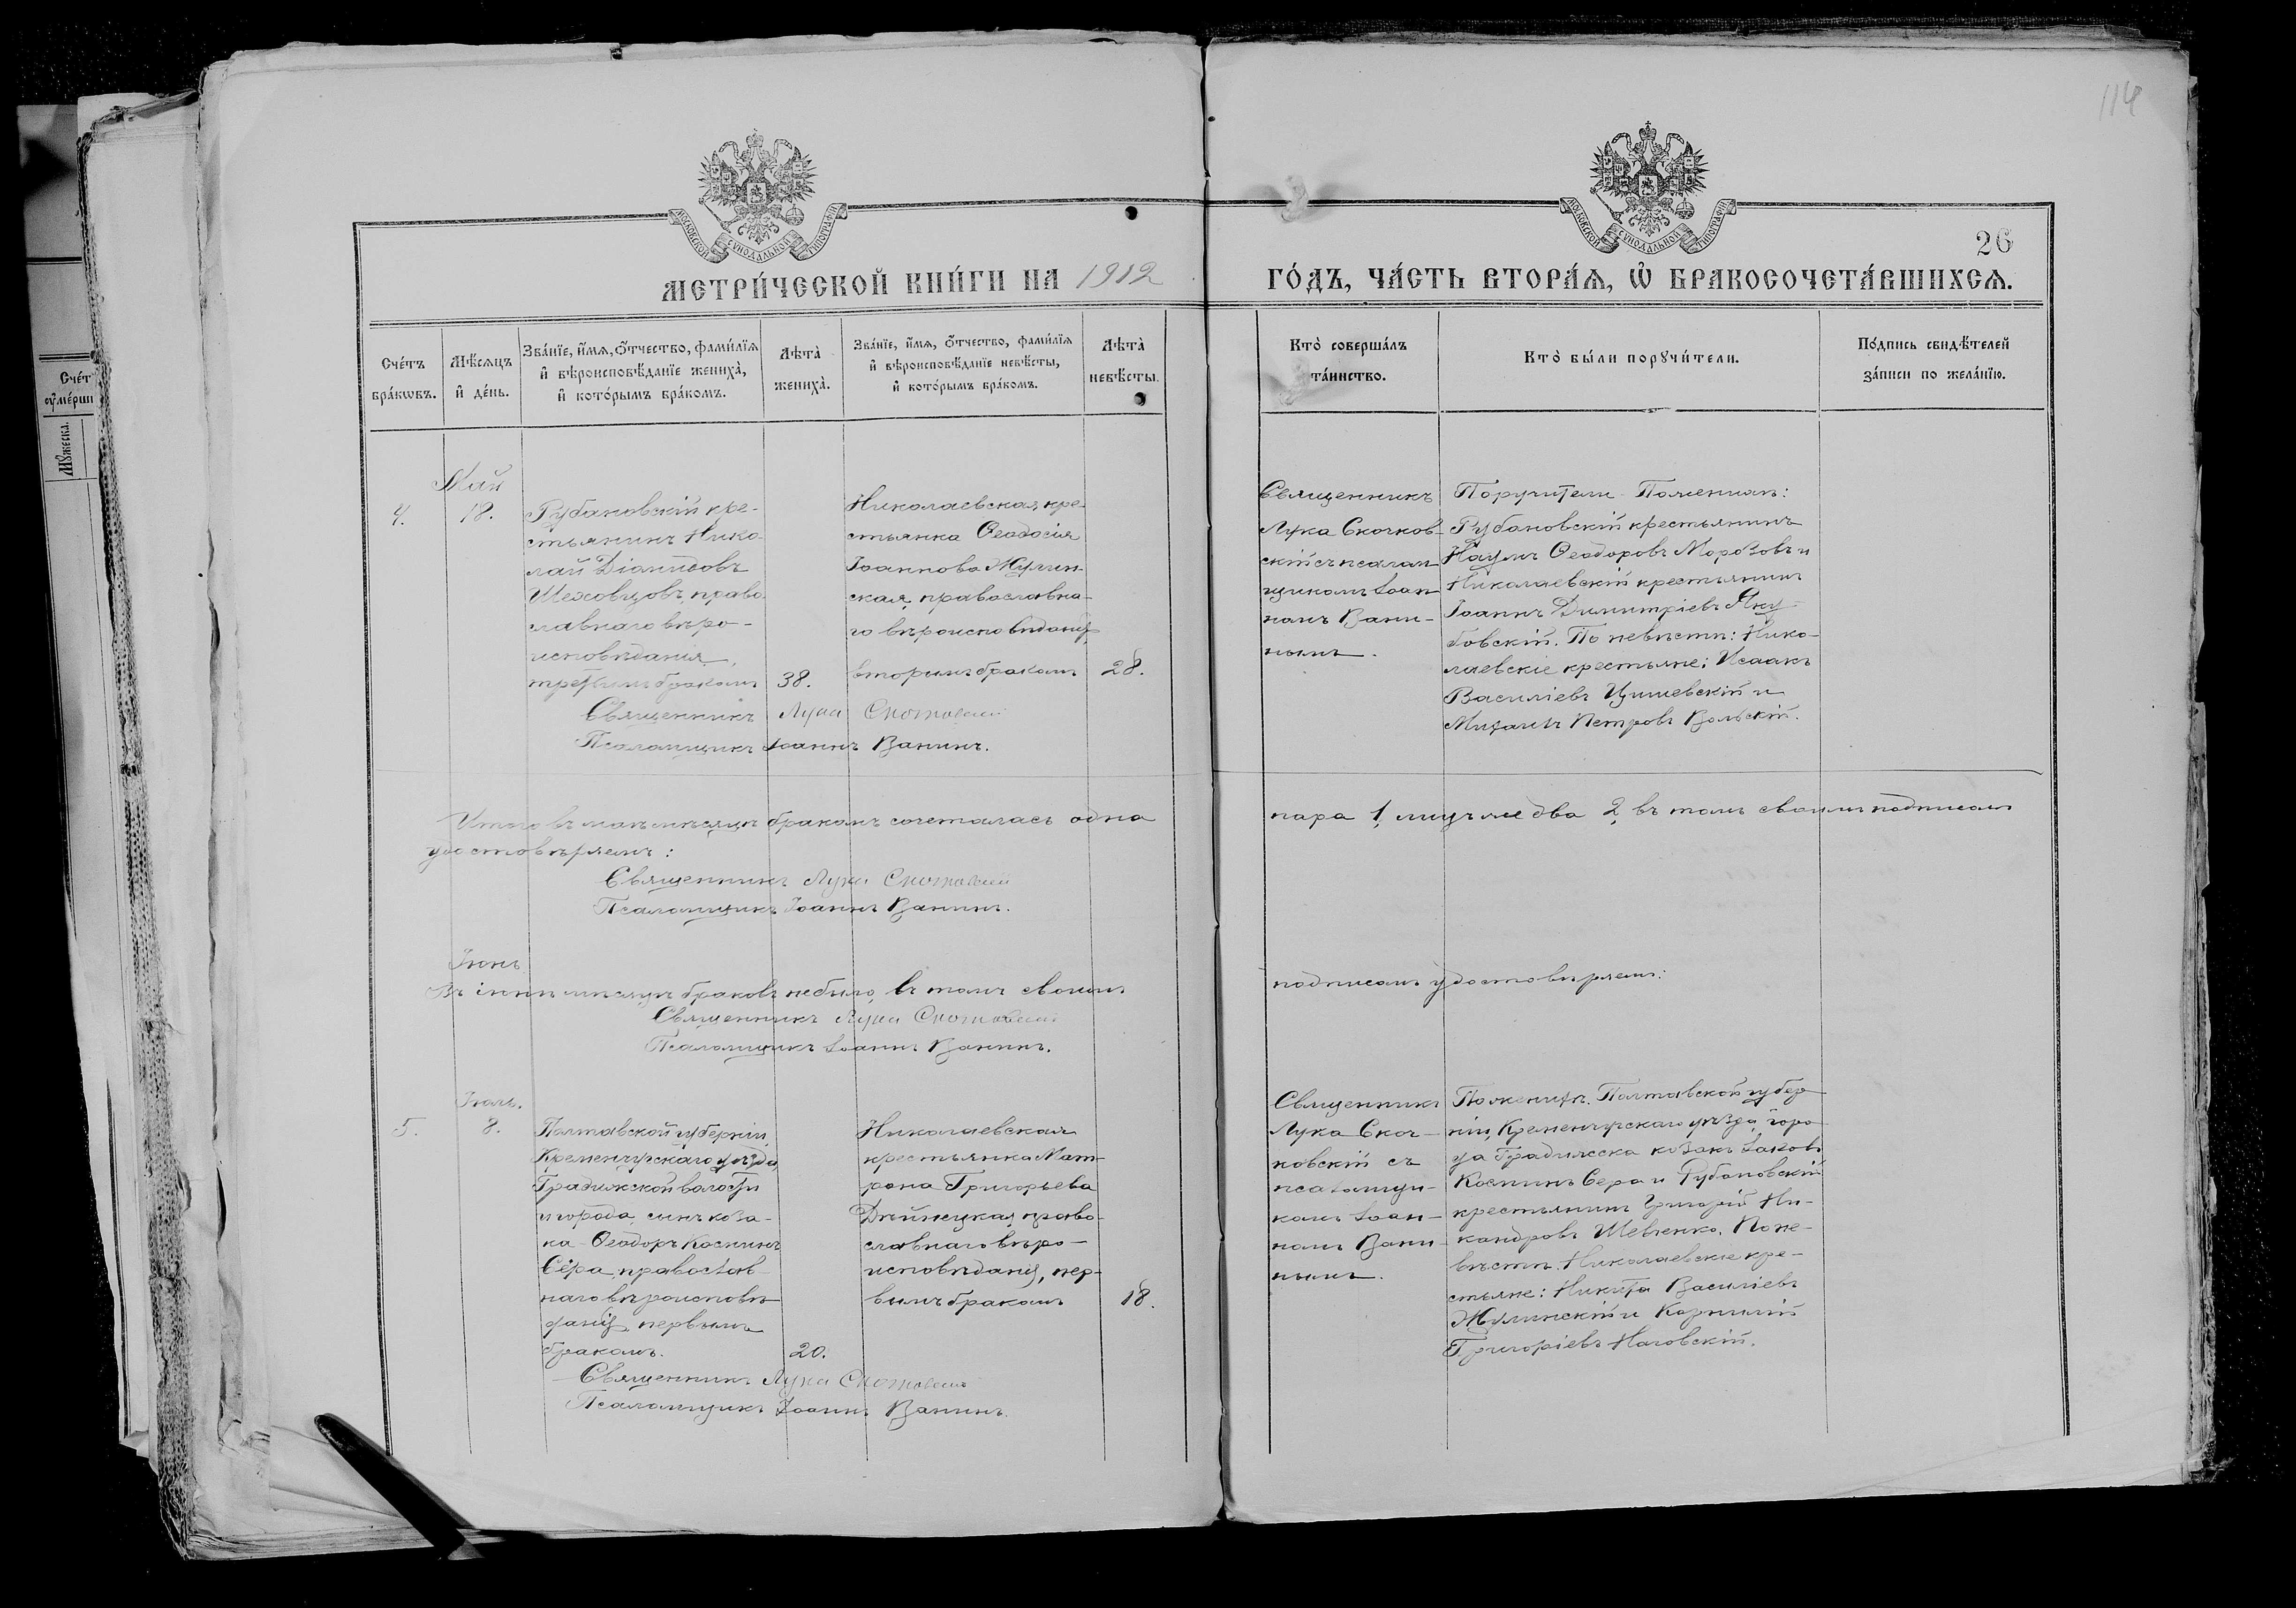 114
МОСКОВСКОЙ СѴНОДАЛЬНОЙ ТИПОГРАФІИ
МОСКОВСКОЙ СѴНОДАЛЬНОЙ ТИПОГРАФІИ
26
МЕТРИ́ЧЕСКОЙ КНИ́ГИ НА 1912
ГО́ДЪ, ЧА́СТЬ ВТОРА́Ѧ, Ѡ҆ БРАКОСОЧЕТА́ВШИХСѦ.
Сче́тъ бра́кѡвъ.
Мѣ́сѧцъ и҆ де́нь.
Зва́нїе, и҆́мѧ, ѻ҆́тчество, фами́лїѧ
и҆ вѣроисповѣ́данїе жениха̀,
и҆ кото́рымъ бра́комъ.
Лѣ̑та̀ жениха̀.
Зва́нїе, и҆́мѧ, ѻ҆́тчество, фами́лїѧ
и҆ вѣроисповѣ́данїе невѣ́сты,
и҆ кото́рымъ бра́комъ.
Лѣ̑та̀ невѣ́сты.
Кто̀ соверша́лъ та́инство.
Кто̀ бы́ли порꙋчи́тели.
По́дпись свидѣ́телей за́писи по жела́нїю.
Сче́т
ᲂу҆ме́рши
Мꙋ́жеска.
Май
4.
18.
Рубановскій кре-
стьянинъ Нико-
лай Діомидовъ
Шеховцовъ, право-
славнаго вѣро-
исповѣданія,
третьимъ бракомъ
38.
Николаевская кре-
стьянка Ѳеодосія
Іоаннова Жулин-
ская, православна-
го вѣроисповѣданія,
вторымъ бракомъ
28.
Священникъ
Лука Скочков-
скій съ псалом-
щикомъ Іоан-
номъ Вани-
нымъ.
Поручители По женихѣ:
Рубановскій крестьянинъ
Наумъ Ѳеодоровъ Морозовъ и
Николаевскій крестьянинъ
Іоаннъ Димитріевъ Яку-
бовскій. По невѣстѣ: Нико-
лаевскіе крестьяне: Исаакъ
Василіевъ и
Михаилъ Петровъ Вольскій.
Священникъ Лука Скочковскій
Псаломщикъ Іоаннъ Ванинъ.
Итого въ маѣ мѣсяцѣ бракомъ сочеталась одна
пара 1, лицъ же два 2, въ томъ своимъ подписомъ
удостовѣряемъ:
Священникъ Лука Скочковскій
Псаломщикъ Іоаннъ Ванинъ.
Іюнь
Въ іюнѣ мѣсяцѣ браковъ не было, въ томъ своимъ
подписомъ удостовѣряемъ:
Священникъ Лука Скочковскій
Псаломщикъ Іоаннъ Ванинъ.
Іюль.
5.
8.
Полтавской губерніи,
Кременчугскаго уѣзда,
Градижской волости
и города, сынъ коза-
ка Ѳеодоръ Косминъ
Сѣра, православ-
наго вѣроисповѣ-
данія, первымъ
бракомъ.
20.
Николаевская
крестьянка Мат-
рона Григорьева
Дѣйнецкая, право-
славнаго вѣро-
исповѣданія, пер-
вымъ бракомъ
18.
Священникъ
Лука Скоч-
ковскій съ
псаломщи-
комъ Іоан-
номъ Вани-
нымъ.
По женихѣ: Полтавской губер-
ніи, Кременчугскаго уѣзда, горо-
да Градижска козакъ Іаковъ
Косминъ Сѣра и Рубановскій
крестьянинъ Григорій Ни-
кандровъ Шевченко. По не-
вѣстѣ: Николаевскіе кре-
стьяне: Никита Василіевъ
Жулинскій и Корнилій
Григоріевъ Наговскій.
Священникъ Лука Скочковскій
Псаломщикъ Іоаннъ Ванинъ.